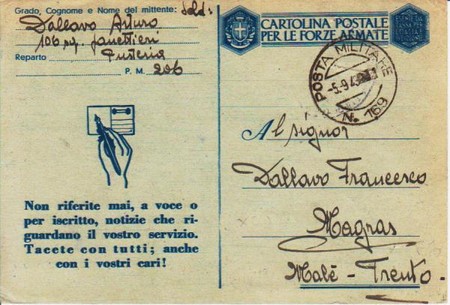 Grado, Cognome e Nome del mittente: Sold:
Dallavo Arturo
106 rg.
Fanteria
Reparto
P. M. 206
CARTOLINA POSTALE
PER LE FORZE ARMATE
POSTA MILITARE
-5.9.43
N. 169
Al signor
Dallavo Francesco
Magras
Malè - Trento.
Non riferite mai, a voce o
per iscritto, notizie che ri-
guardano il vostro servizio.
Tacete con tutti; anche
con i vostri cari!